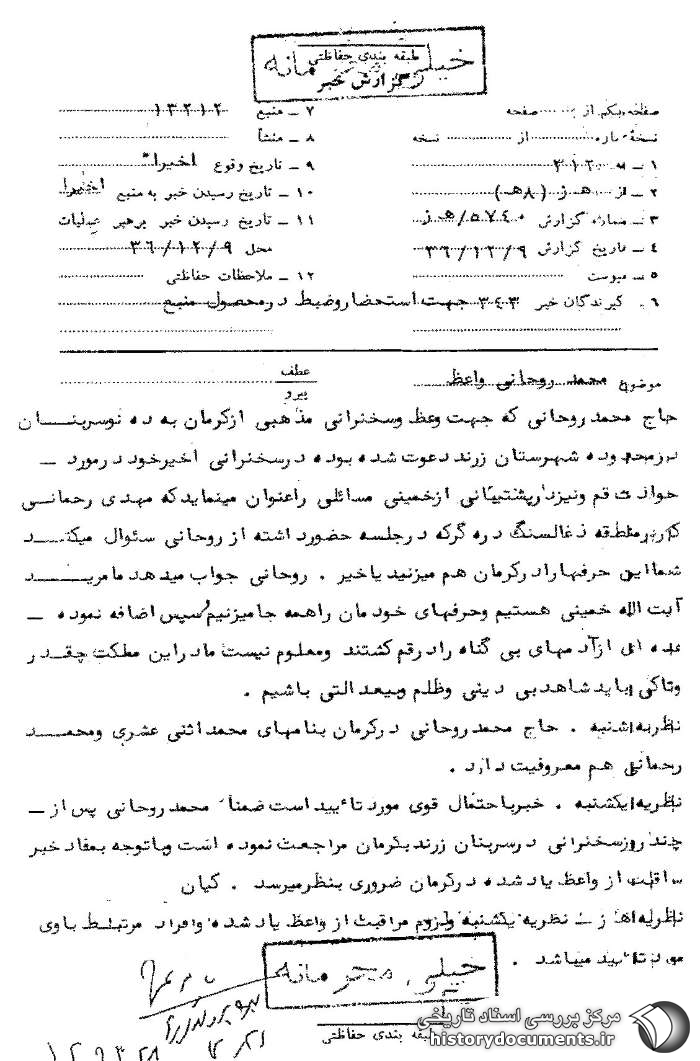 طبقه بندی حفاظتی
خیلی محرمانه
گزارش خبر
صفحه یکم از صفحه
نسخه شماره از نسخه
۱ ـ به ۳۱۲
۲ ـ از هـ ز (۸هـ)
۳ ـ شماره گزارش ۵۷۴۰/هـ ز
۴ ـ تاریخ گزارش ۳۶/۱۲/۹
۵ ـ پیوست
۶ ـ گیرندگان خبر ۳۴۳ جهت استحضار و ضبط در محصول منبع
۷ ـ منبع ۱۳۲۱۲
۸ ـ منشأ
۹ ـ تاریخ وقوع اخیراً
۱۰ ـ تاریخ رسیدن خبر به منبع اخیراً
۱۱ ـ تاریخ رسیدن خبر برهبر عملیات
محل ۳۶/۱۲/۹
۱۲ ـ ملاحظات حفاظتی
موضوع محمد روحانی واعظ
عطف
پیرو
حاج محمد روحانی که جهت وعظ وسخنرانی مذهبی ازکرمان به ده نوسربنـــان
درمحدوده شهرستان زرند دعوت شده بوده درسخنرانی اخیرخود درمورد ـ
حوادث قم ونیزدرپشتیبانی ازخمینی مسائلی راعنوان مینماید که مهدی رحمانـی
کاربرمنطقه ذغالسنگ دره گرکه درجلسه حضورداشته از روحانی سئوال میکنــد
شمااین حرفهارادرکرمان هم میزنید یاخیر . روحانی جواب میدهد مامریـــد
آیت الله خمینی هستیم وحرفهای خودمان راهمه جامیزنیم وسپس اضافه نموده ـ
عده ای ازآدمهای بی گناه رادرقم کشتند ومعلوم نیست مادراین مملکت چقـدر
وتاکی باید شاهد بی دینی وظلم وبیعدالتی باشیم .
نظریه شنبه . حاج محمد روحانی درکرمان بنامهای محمد اثنی عشری ومحمــد
رحمانی هم معروفیت دارد .
نظریه یکشنبه . خبرباحتمال قوی مورد تائید است ضمناً محمد روحانی پس از ـ
چند روزسخنرانی درسربنان زرند بکرمان مراجعت نموده است وباتوجه بمفاد خبر
مراقبت از واعظ یادشده درکرمان ضروری بنظرمیرسد . کیان
نظریه هـ ز ـ نظریه یکشنبه ولزوم مراقبت از واعظ یادشده وافراد مرتبط باوی
مورد تائید میباشد .
خیلی محرمانه
طبقه بندی حفاظتی
مرکز بررسی اسناد تاریخی
historydocuments.ir